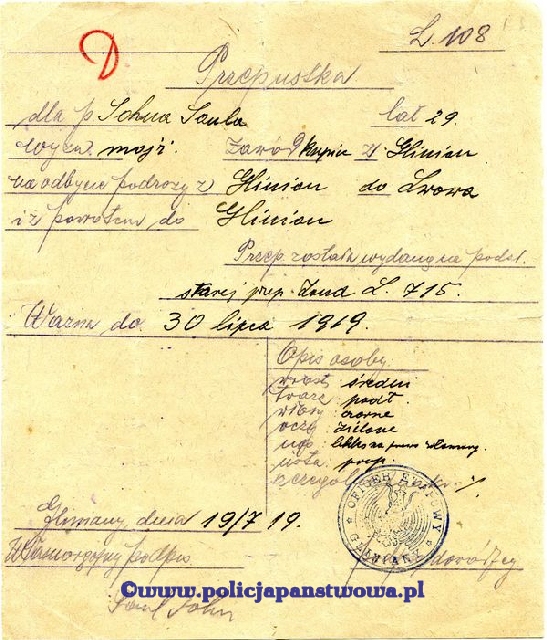 L. 108
Przepustka
dla p. Sohna Saula lat 29
wyzn. mojż. zawód kupiec z Glinian
na odbycie podrózy z Glinian do Lwowa
i z powrotem do Glinian
Przep. została wydaną na podst.
starej przep. Żand. L. 715.
Ważna do 30 lipca 1919.
Opis osoby
wzrost: średni
twarz: podł.
włosy: czarne
oczy: zielone
nos:
usta: prop.
Gliniany, dnia 19/7 19.
OFICER ETAPOWY
GLINIANY
podpis
Saul Sohn
©www.policjapanstwowa.pl